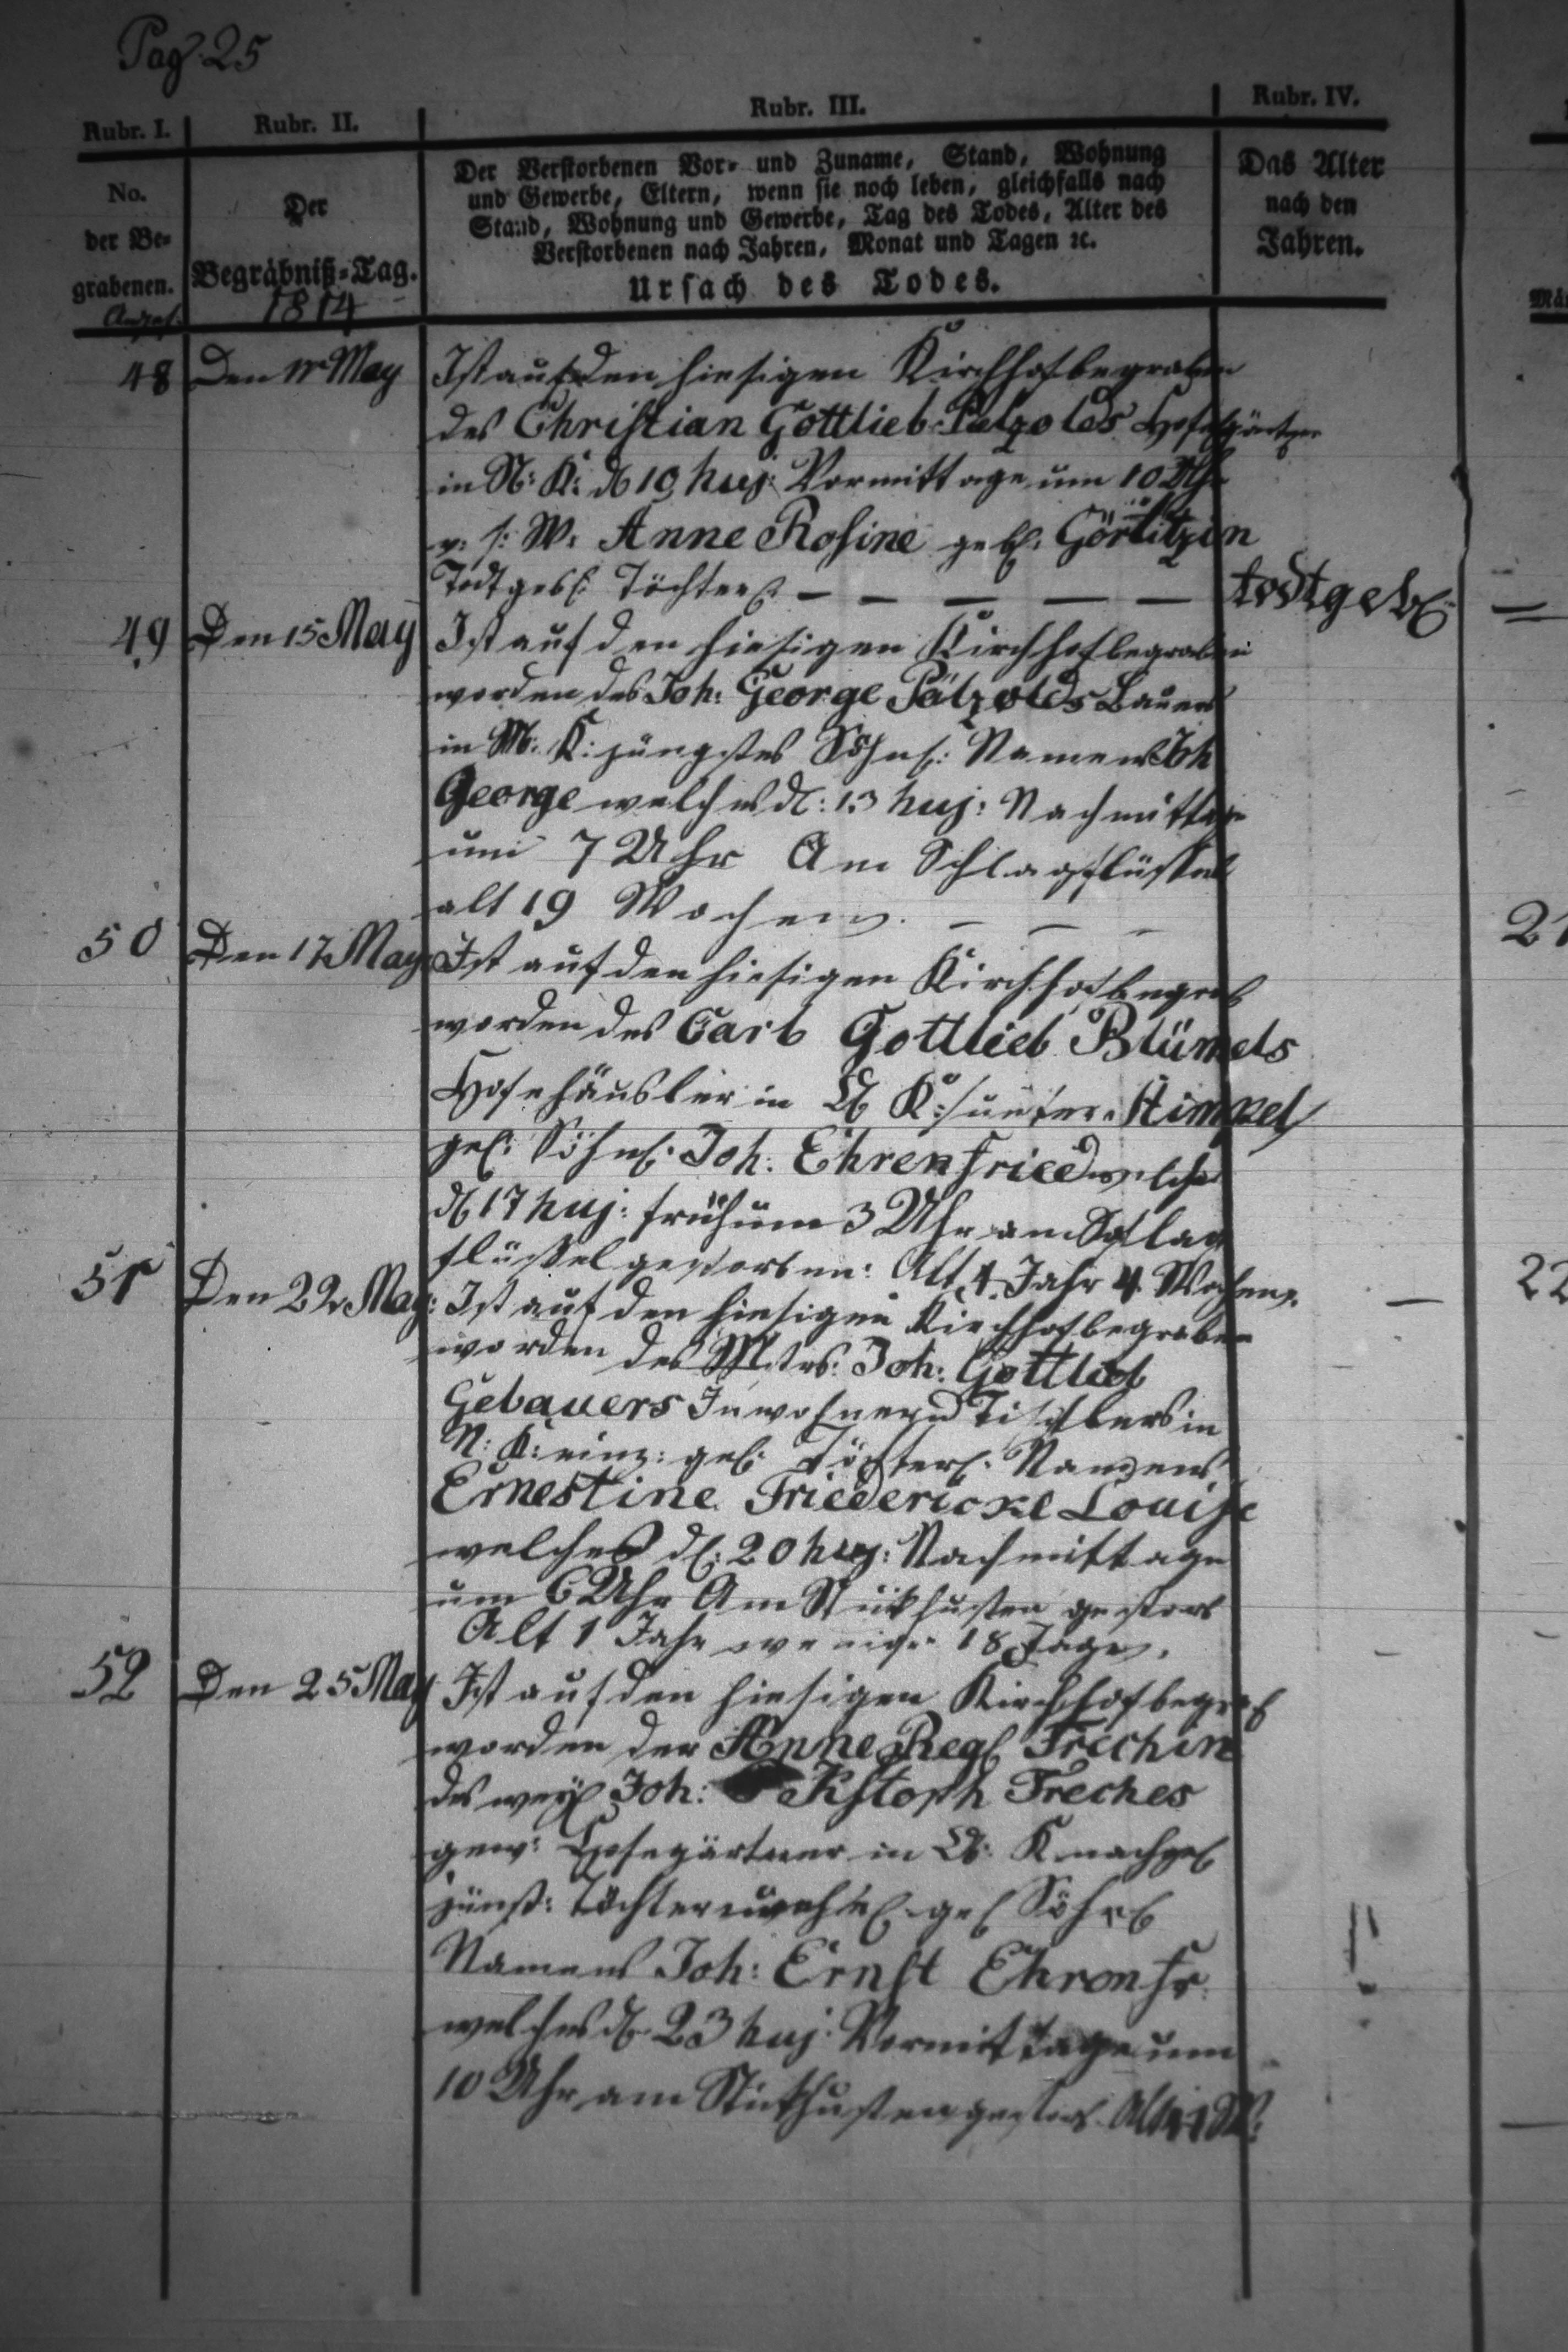 Pag. 25
Rubr. I.
Rubr. II.
Rubr. III.
Rubr. IV.
No.
der Be-
grabenen.
Der
Begräbniß-Tag.
1814
Der Verstorbenen Vor- und Zuname, Stand, Wohnung
und Gewerbe, Eltern, wenn sie noch leben, gleichfalls nach
Stand, Wohnung und Gewerbe, Tag des Todes, Alter des
Verstorbenen nach Jahren, Monat und Tagen ꝛc.
Ursach des Todes.
Das Alter
nach den
Jahren.
48 Den May Ist auf den hiesigen Kirchhof begraben
des Christian Gottlieb Pelzolds Hofegärtner
in N: K: d 10 huj: Vormittage um 10 Uhr
v: s: W: Anne Rosine geb: Görlitzin
Todtgeb: Töchterl. — — — — — todtgeb:
49 Den 15 May Ist auf den hiesigen Kirchhof begraben
worden des Joh: George Pätzolds Bauers
in M: K: jüngstes Söhnl: Namens Joh
George welches d: 13 huj: Nachmittage
um 7 Uhr Am Schlagflüssel
alt 19 Wochen. — — —
50 Den 17 May Ist auf den hiesigen Kirchhof begrab
worden des Carl Gottlieb Blümels
Hofehäusler in K:
gel: Söhnl: Joh: Ehrenfried welches
d 17 huj: früh um 3 Uhr am Schlag
flüssel gestorben: Alt 4 Jahr 4 Wochen.
51 Den 22 May: Ist auf den hiesigen Kirchhof begraben
worden des Mstrs: Joh: Gottlieb
Gebauers Inwohner u Tischlers in
N: K: einz: gel: Töchterl: Namens
Ernestine Friedericke Louise
welches d: 20 huj: Nachmittage
um 6 Uhr Am Stickhusten gestorb
Alt 1 Jahr weniger 18 Tage.
52 Den 25 May Ist auf den hiesigen Kirchhof begrab
worden der Anne Regl Frechin
des weyl Joh: Freches
gew: Hofegärtner in K nachgel
jüngst: Tochter gel Söhnl
Namens Joh: Ernst Ehrenfr:
welches d 23 huj: Vormittage um
10 Uhr am Stickhusten gestorb. Alt
21
22